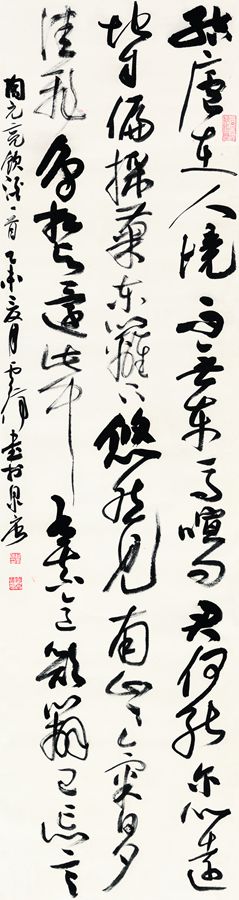 結廬在人境而無車馬喧問君何能爾心遠
地自偏採菊東籬下悠然見南山々氣日夕
佳飛鳥相與還此中有真意欲辨已忘言
陶元亮飲酒一首乙未夏月書於泉唐